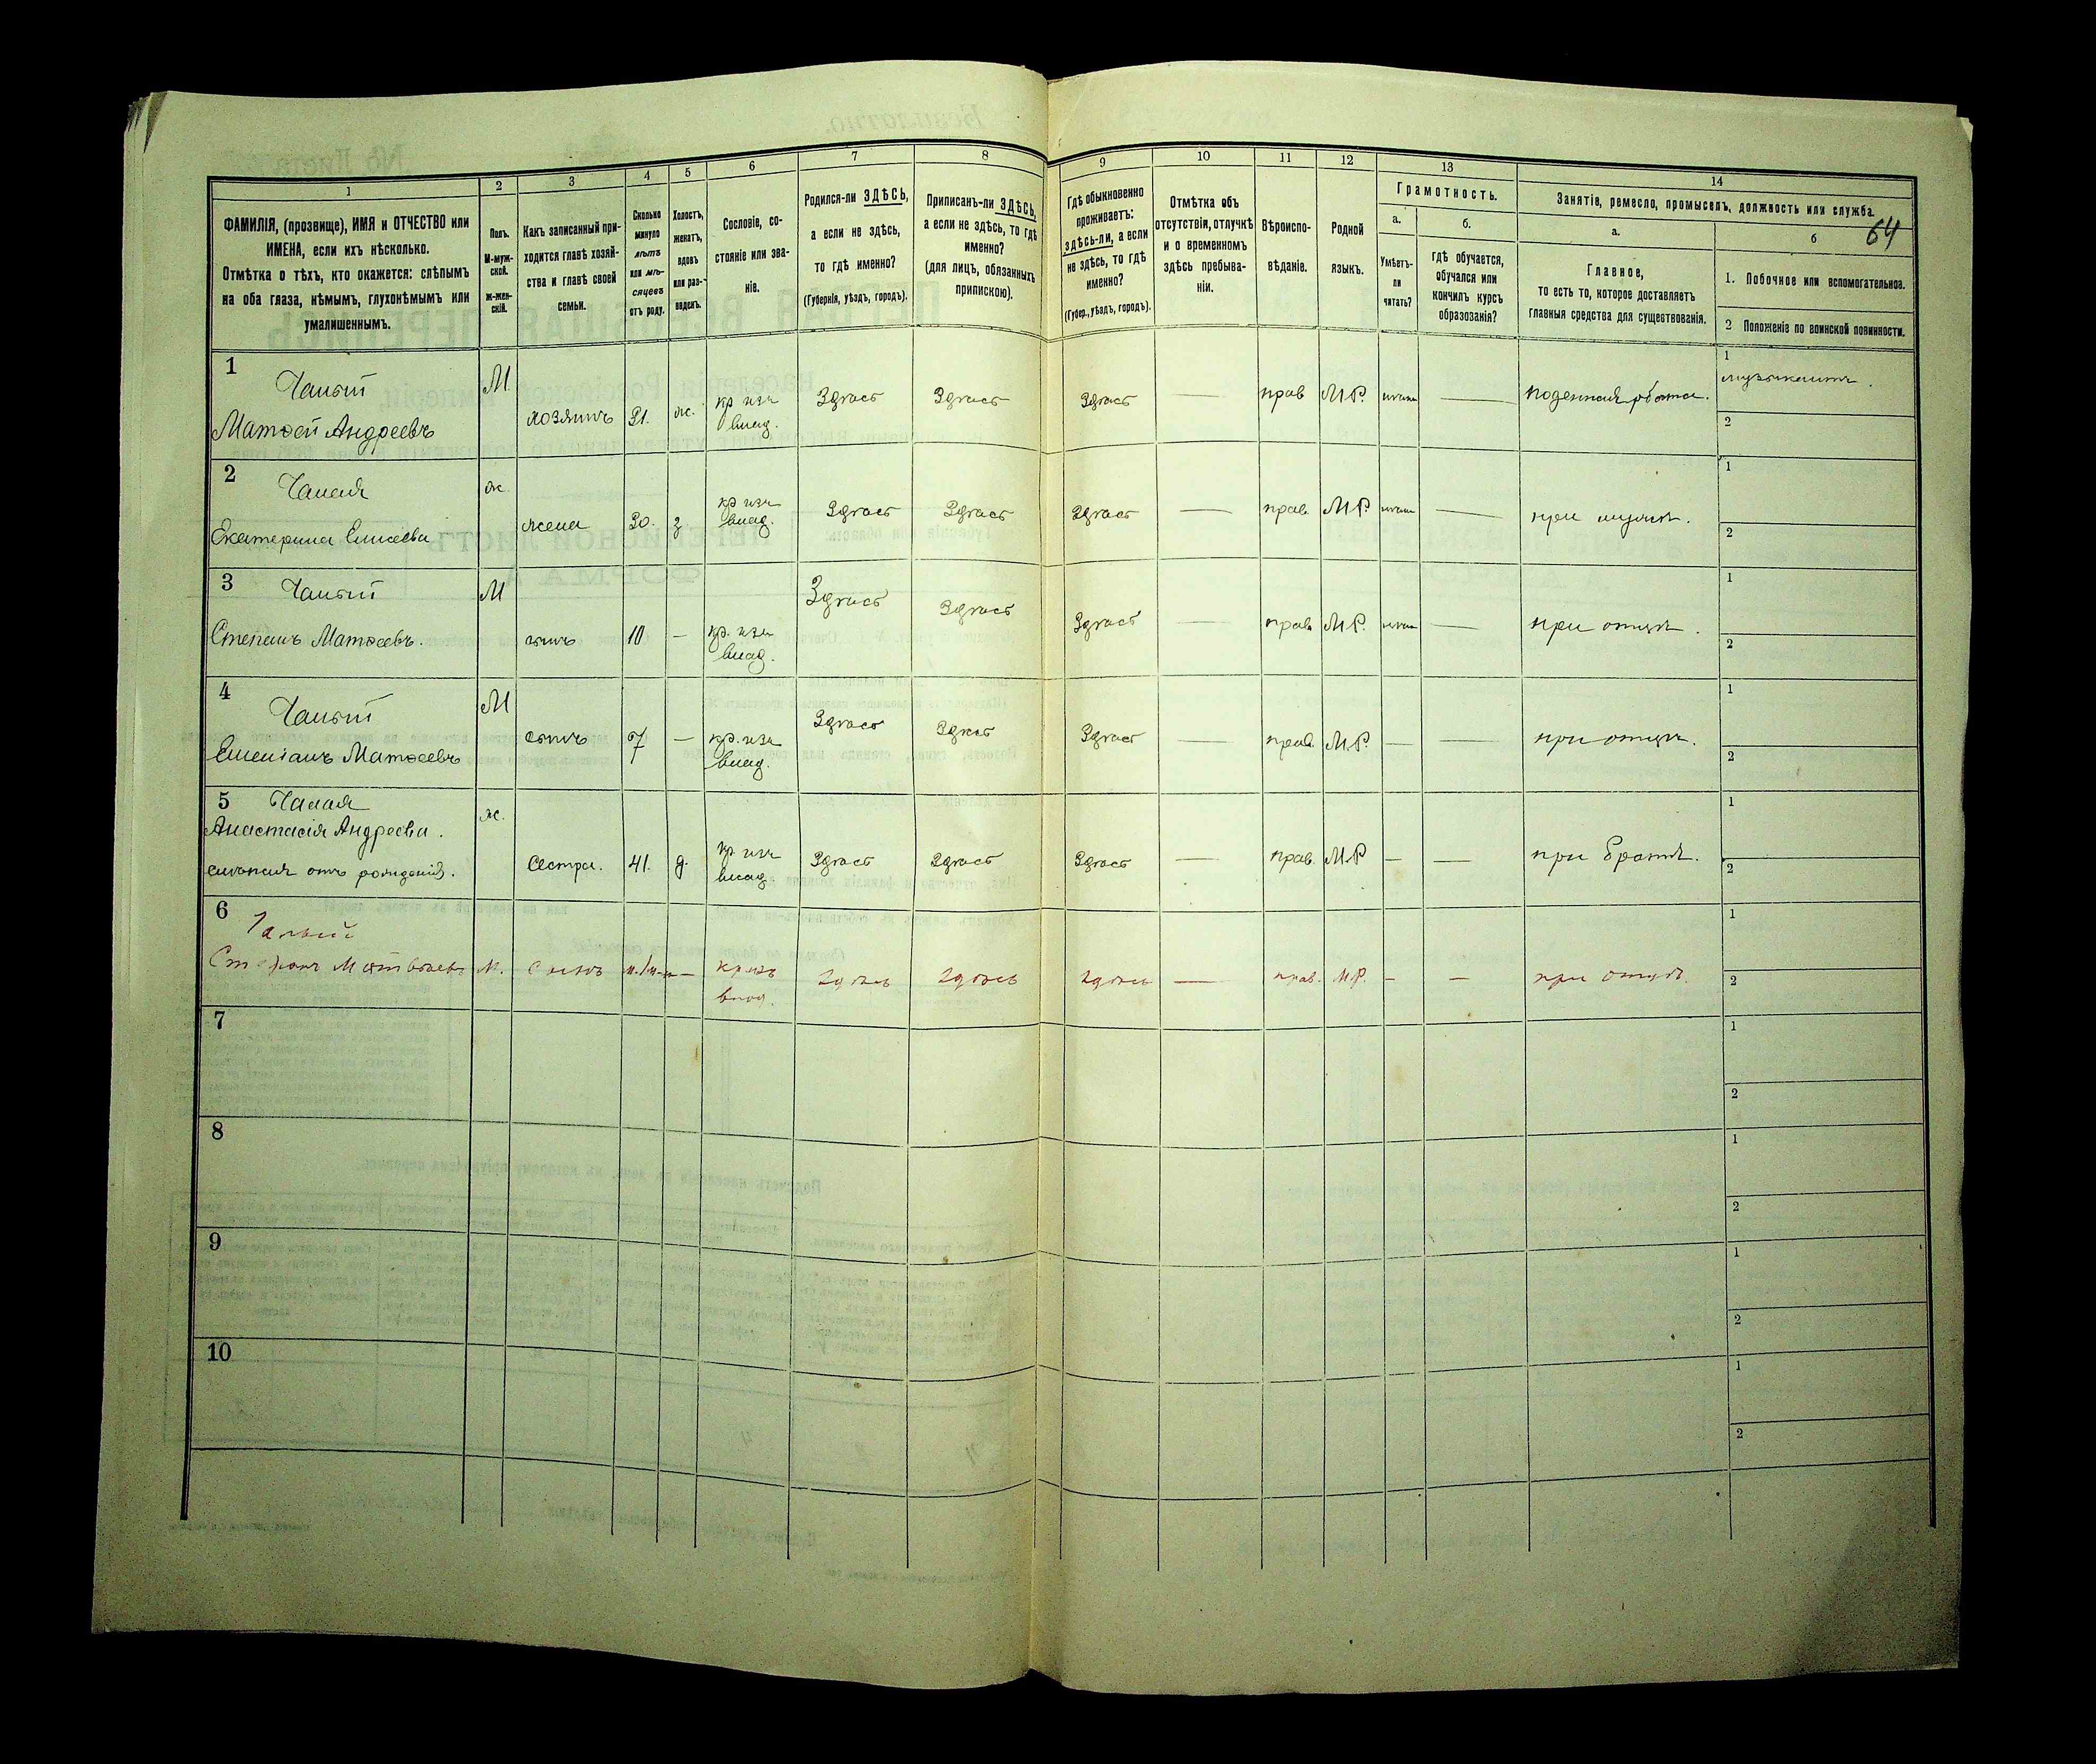 64
1
2
3
4
5
6
7
8
9
10
11
12
13
14
ФАМИЛІЯ, (прозвище), ИМЯ и ОТЧЕСТВО или
ИМЕНА, если ихъ нѣсколько.
Отмѣтка о тѣхъ, кто окажется: слѣпымъ
на оба глаза, нѣмымъ, глухонѣмымъ или
умалишеннымъ.
Полъ.
М-муж-
ской.
ж-жен-
скій.
Какъ записанный при-
ходится главѣ хозяй-
ства и главѣ своей
семьи.
Сколько
минуло
лѣтъ
или мѣ-
сяцевъ
отъ роду.
Холостъ,
женатъ,
вдовъ
или раз-
веденъ.
Сословіе, со-
стояніе или зва-
ніе.
Родился-ли ЗДѢСЬ,
а если не здѣсь,
то гдѣ именно?
(Губернія, уѣздъ, городъ).
Приписанъ-ли ЗДѢСЬ,
а если не здѣсь, то гдѣ
именно?
(для лицъ, обязанныхъ
припискою).
Гдѣ обыкновенно
проживаетъ:
здѣсь-ли, а если
не здѣсь, то гдѣ
именно?
(Губер., уѣздъ, городъ).
Отмѣтка объ
отсутствіи, отлучкѣ
и о временномъ
здѣсь пребыва-
ніи.
Вѣроиспо-
вѣданіе.
Родной
языкъ.
Грамотность.
а.
Умѣетъ-
ли
читать?
б.
гдѣ обучается,
обучался или
кончилъ курсъ
образованія?
Занятіе, ремесло, промыселъ, должность или служба.
а.
Главное,
то есть то, которое доставляетъ
главныя средства для существованія.
б
1. Побочное или вспомогательное.
2 Положеніе по воинской повинности.
1
Чалый
Матвей Андреевъ
М
хозяинъ
ж.
кр изъ
влад.
Здѣсь
Здѣсь
Здѣсь
—
прав
М.Р.
—
поденная работа.
1
музыкантъ.
2
2
Чалая
Екатерина Елисеева
ж
жена
30.
з
кр изъ
влад.
Здѣсь
Здѣсь
Здѣсь
—
прав.
М.Р.
—
при мужѣ.
1
2
3
Чалый
Степанъ Матвеевъ.
М
сынъ
10
—
кр. изъ
влад.
Здѣсь
Здѣсь
Здѣсь
—
прав
М.Р.
—
при отцѣ.
1
2
4
Чалый
Матвеевъ
М
сынъ
7
—
кр. изъ
влад.
Здѣсь
Здѣсь
Здѣсь
—
прав.
М.Р.
—
—
при отцѣ.
1
2
5 Чалая
Анастасія Андреева.
слѣпая отъ рожденія.
ж.
сестра.
41.
д.
кр изъ
влад
Здѣсь
Здѣсь
Здѣсь
—
прав.
М.Р
—
—
при братѣ.
1
2
6
Чалый
Матвѣевъ
М.
сынъ
—
кр изъ
влад.
здѣсь
здѣсь
здѣсь
—
прав.
М.Р.
—
—
при отцѣ.
1
2
7
1
2
8
1
2
9
1
2
10
1
2